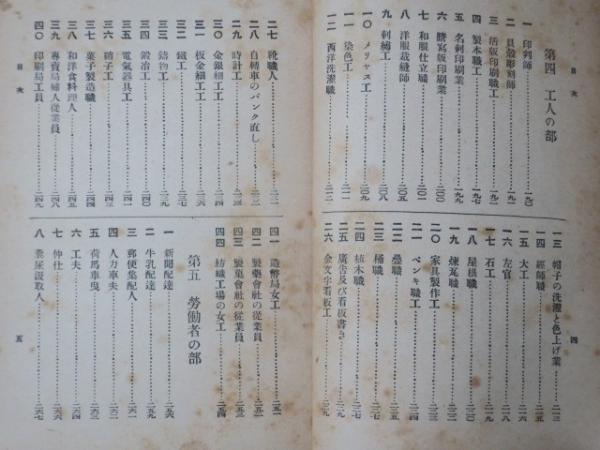 目次
第四 工人の部
一 印刷師……一九〇
二 貝殼彫刻師
三 活版印刷職工
四 製本職工……一九七
五 名刺印刷業……一九九
六 謄寫版印刷業……一九九
七 和服仕立職
八 洋服裁縫師……二〇五
九 刺繡工……二〇八
一〇 メリヤス工……二〇九
一一 染色工……二一一
一二 西洋洗濯職……二一二
一三 帽子の洗濯と色上げ業……二一三
一四 經師職……二一五
一五 大工……二一六
一六 左官……二一八
一七 石工……二一九
一八 屋根職……二二〇
一九 煉瓦職……二二〇
二〇 家具製作工……二二三
二一 ペンキ職工……二二四
二二 疊職……二二五
二三 桶職……二二七
二四 植木職……二二七
二五 廣告及び看板書き……二二九
二六 金文字看板工……二二九
四
二七 靴職人……二三二
二八 自轉車のパンク直し……二三三
二九 時計工……二三四
三〇 金銀細工工……二三五
三一 板金細工工……二三六
三二 鐵工……二三七
三三 鑄物工……二三九
三四 鍛冶工……二四〇
三五 電氣器具工……二四一
三六 硝子工……二四二
三七 菓子製造職……二四四
三八 和洋食料理人……二四五
三九 專賣局婦人從業員……二四八
四〇 印刷局工員……二四九
目次
四一 造幣局女工……二五一
四二 製藥會社の從業員……二五一
四三 製菓會社の從業員……二五三
四四 紡織工場の女工……二五四
第五 勞働者の部
一 新聞配達……二五六
二 牛乳配達……二五九
三 郵便集配人……二六一
四 人力車夫……二六二
五 荷馬車曳……二六四
六 工夫……二六四
七 仲仕……二六六
八 糞尿汲取人……二六七
五